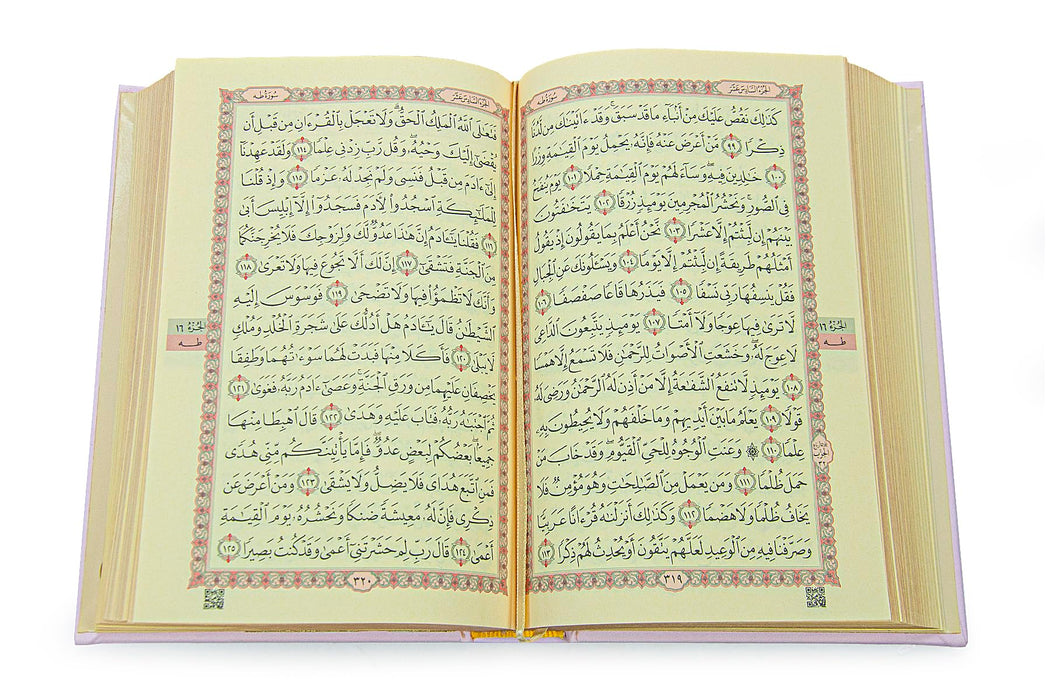 سُورَةُ طه
الجُزْءُ السَّادِسَ عَشَرَ
كَذَٰلِكَ نَقُصُّ عَلَيْكَ مِنْ أَنۢبَآءِ مَا قَدْ سَبَقَۚ وَقَدْ ءَاتَيْنَٰكَ مِن لَّدُنَّا
ذِكْرًا ٩٩ مَّنْ أَعْرَضَ عَنْهُ فَإِنَّهُۥ يَحْمِلُ يَوْمَ ٱلْقِيَٰمَةِ وِزْرًا
١٠٠ خَٰلِدِينَ فِيهِۖ وَسَآءَ لَهُمْ يَوْمَ ٱلْقِيَٰمَةِ حِمْلًا ١٠١ يَوْمَ يُنفَخُ
فِى ٱلصُّورِۚ وَنَحْشُرُ ٱلْمُجْرِمِينَ يَوْمَئِذٍ زُرْقًا ١٠٢ يَتَخَٰفَتُونَ
بَيْنَهُمْ إِن لَّبِثْتُمْ إِلَّا عَشْرًا ١٠٣ نَّحْنُ أَعْلَمُ بِمَا يَقُولُونَ إِذْ يَقُولُ
أَمْثَلُهُمْ طَرِيقَةً إِن لَّبِثْتُمْ إِلَّا يَوْمًا ١٠٤ وَيَسْـَٔلُونَكَ عَنِ ٱلْجِبَالِ
فَقُلْ يَنسِفُهَا رَبِّى نَسْفًا ١٠٥ فَيَذَرُهَا قَاعًا صَفْصَفًا ١٠٦
لَّا تَرَىٰ فِيهَا عِوَجًا وَلَآ أَمْتًا ١٠٧ يَوْمَئِذٍ يَتَّبِعُونَ ٱلدَّاعِىَ
لَا عِوَجَ لَهُۥۖ وَخَشَعَتِ ٱلْأَصْوَاتُ لِلرَّحْمَٰنِ فَلَا تَسْمَعُ إِلَّا هَمْسًا
١٠٨ يَوْمَئِذٍ لَّا تَنفَعُ ٱلشَّفَٰعَةُ إِلَّا مَنْ أَذِنَ لَهُ ٱلرَّحْمَٰنُ وَرَضِىَ لَهُۥ
قَوْلًا ١٠٩ يَعْلَمُ مَا بَيْنَ أَيْدِيهِمْ وَمَا خَلْفَهُمْ وَلَا يُحِيطُونَ بِهِۦ
عِلْمًا ١١٠ ۞ وَعَنَتِ ٱلْوُجُوهُ لِلْحَىِّ ٱلْقَيُّومِۖ وَقَدْ خَابَ مَنْ
حَمَلَ ظُلْمًا ١١١ وَمَن يَعْمَلْ مِنَ ٱلصَّٰلِحَٰتِ وَهُوَ مُؤْمِنٌ فَلَا
يَخَافُ ظُلْمًا وَلَا هَضْمًا ١١٢ وَكَذَٰلِكَ أَنزَلْنَٰهُ قُرْءَانًا عَرَبِيًّا
وَصَرَّفْنَا فِيهِ مِنَ ٱلْوَعِيدِ لَعَلَّهُمْ يَتَّقُونَ أَوْ يُحْدِثُ لَهُمْ ذِكْرًا ١١٣
٣١٩
الجُزْءُ ١٦
طه
سُورَةُ طه
الجُزْءُ السَّادِسَ عَشَرَ
فَتَعَٰلَى ٱللَّهُ ٱلْمَلِكُ ٱلْحَقُّۗ وَلَا تَعْجَلْ بِٱلْقُرْءَانِ مِن قَبْلِ أَن
يُقْضَىٰٓ إِلَيْكَ وَحْيُهُۥۖ وَقُل رَّبِّ زِدْنِى عِلْمًا ١١٤ وَلَقَدْ عَهِدْنَآ
إِلَىٰٓ ءَادَمَ مِن قَبْلُ فَنَسِىَ وَلَمْ نَجِدْ لَهُۥ عَزْمًا ١١٥ وَإِذْ قُلْنَا
لِلْمَلَٰٓئِكَةِ ٱسْجُدُوا۟ لِءَادَمَ فَسَجَدُوٓا۟ إِلَّآ إِبْلِيسَ أَبَىٰ
١١٦ فَقُلْنَا يَٰٓـَٔادَمُ إِنَّ هَٰذَا عَدُوٌّ لَّكَ وَلِزَوْجِكَ فَلَا يُخْرِجَنَّكُمَا
مِنَ ٱلْجَنَّةِ فَتَشْقَىٰٓ ١١٧ إِنَّ لَكَ أَلَّا تَجُوعَ فِيهَا وَلَا تَعْرَىٰ ١١٨
وَأَنَّكَ لَا تَظْمَؤُا۟ فِيهَا وَلَا تَضْحَىٰ ١١٩ فَوَسْوَسَ إِلَيْهِ
ٱلشَّيْطَٰنُ قَالَ يَٰٓـَٔادَمُ هَلْ أَدُلُّكَ عَلَىٰ شَجَرَةِ ٱلْخُلْدِ وَمُلْكٍ
لَّا يَبْلَىٰ ١٢٠ فَأَكَلَا مِنْهَا فَبَدَتْ لَهُمَا سَوْءَٰتُهُمَا وَطَفِقَا
يَخْصِفَانِ عَلَيْهِمَا مِن وَرَقِ ٱلْجَنَّةِۚ وَعَصَىٰٓ ءَادَمُ رَبَّهُۥ فَغَوَىٰ ١٢١
ثُمَّ ٱجْتَبَٰهُ رَبُّهُۥ فَتَابَ عَلَيْهِ وَهَدَىٰ ١٢٢ قَالَ ٱهْبِطَا مِنْهَا
جَمِيعًۢاۖ بَعْضُكُمْ لِبَعْضٍ عَدُوٌّۖ فَإِمَّا يَأْتِيَنَّكُم مِّنِّى هُدًى
فَمَنِ ٱتَّبَعَ هُدَاىَ فَلَا يَضِلُّ وَلَا يَشْقَىٰ ١٢٣ وَمَنْ أَعْرَضَ عَن
ذِكْرِى فَإِنَّ لَهُۥ مَعِيشَةً ضَنكًا وَنَحْشُرُهُۥ يَوْمَ ٱلْقِيَٰمَةِ
أَعْمَىٰ ١٢٤ قَالَ رَبِّ لِمَ حَشَرْتَنِىٓ أَعْمَىٰ وَقَدْ كُنتُ بَصِيرًا ١٢٥
٣٢٠
الجُزْءُ ١٦
طه